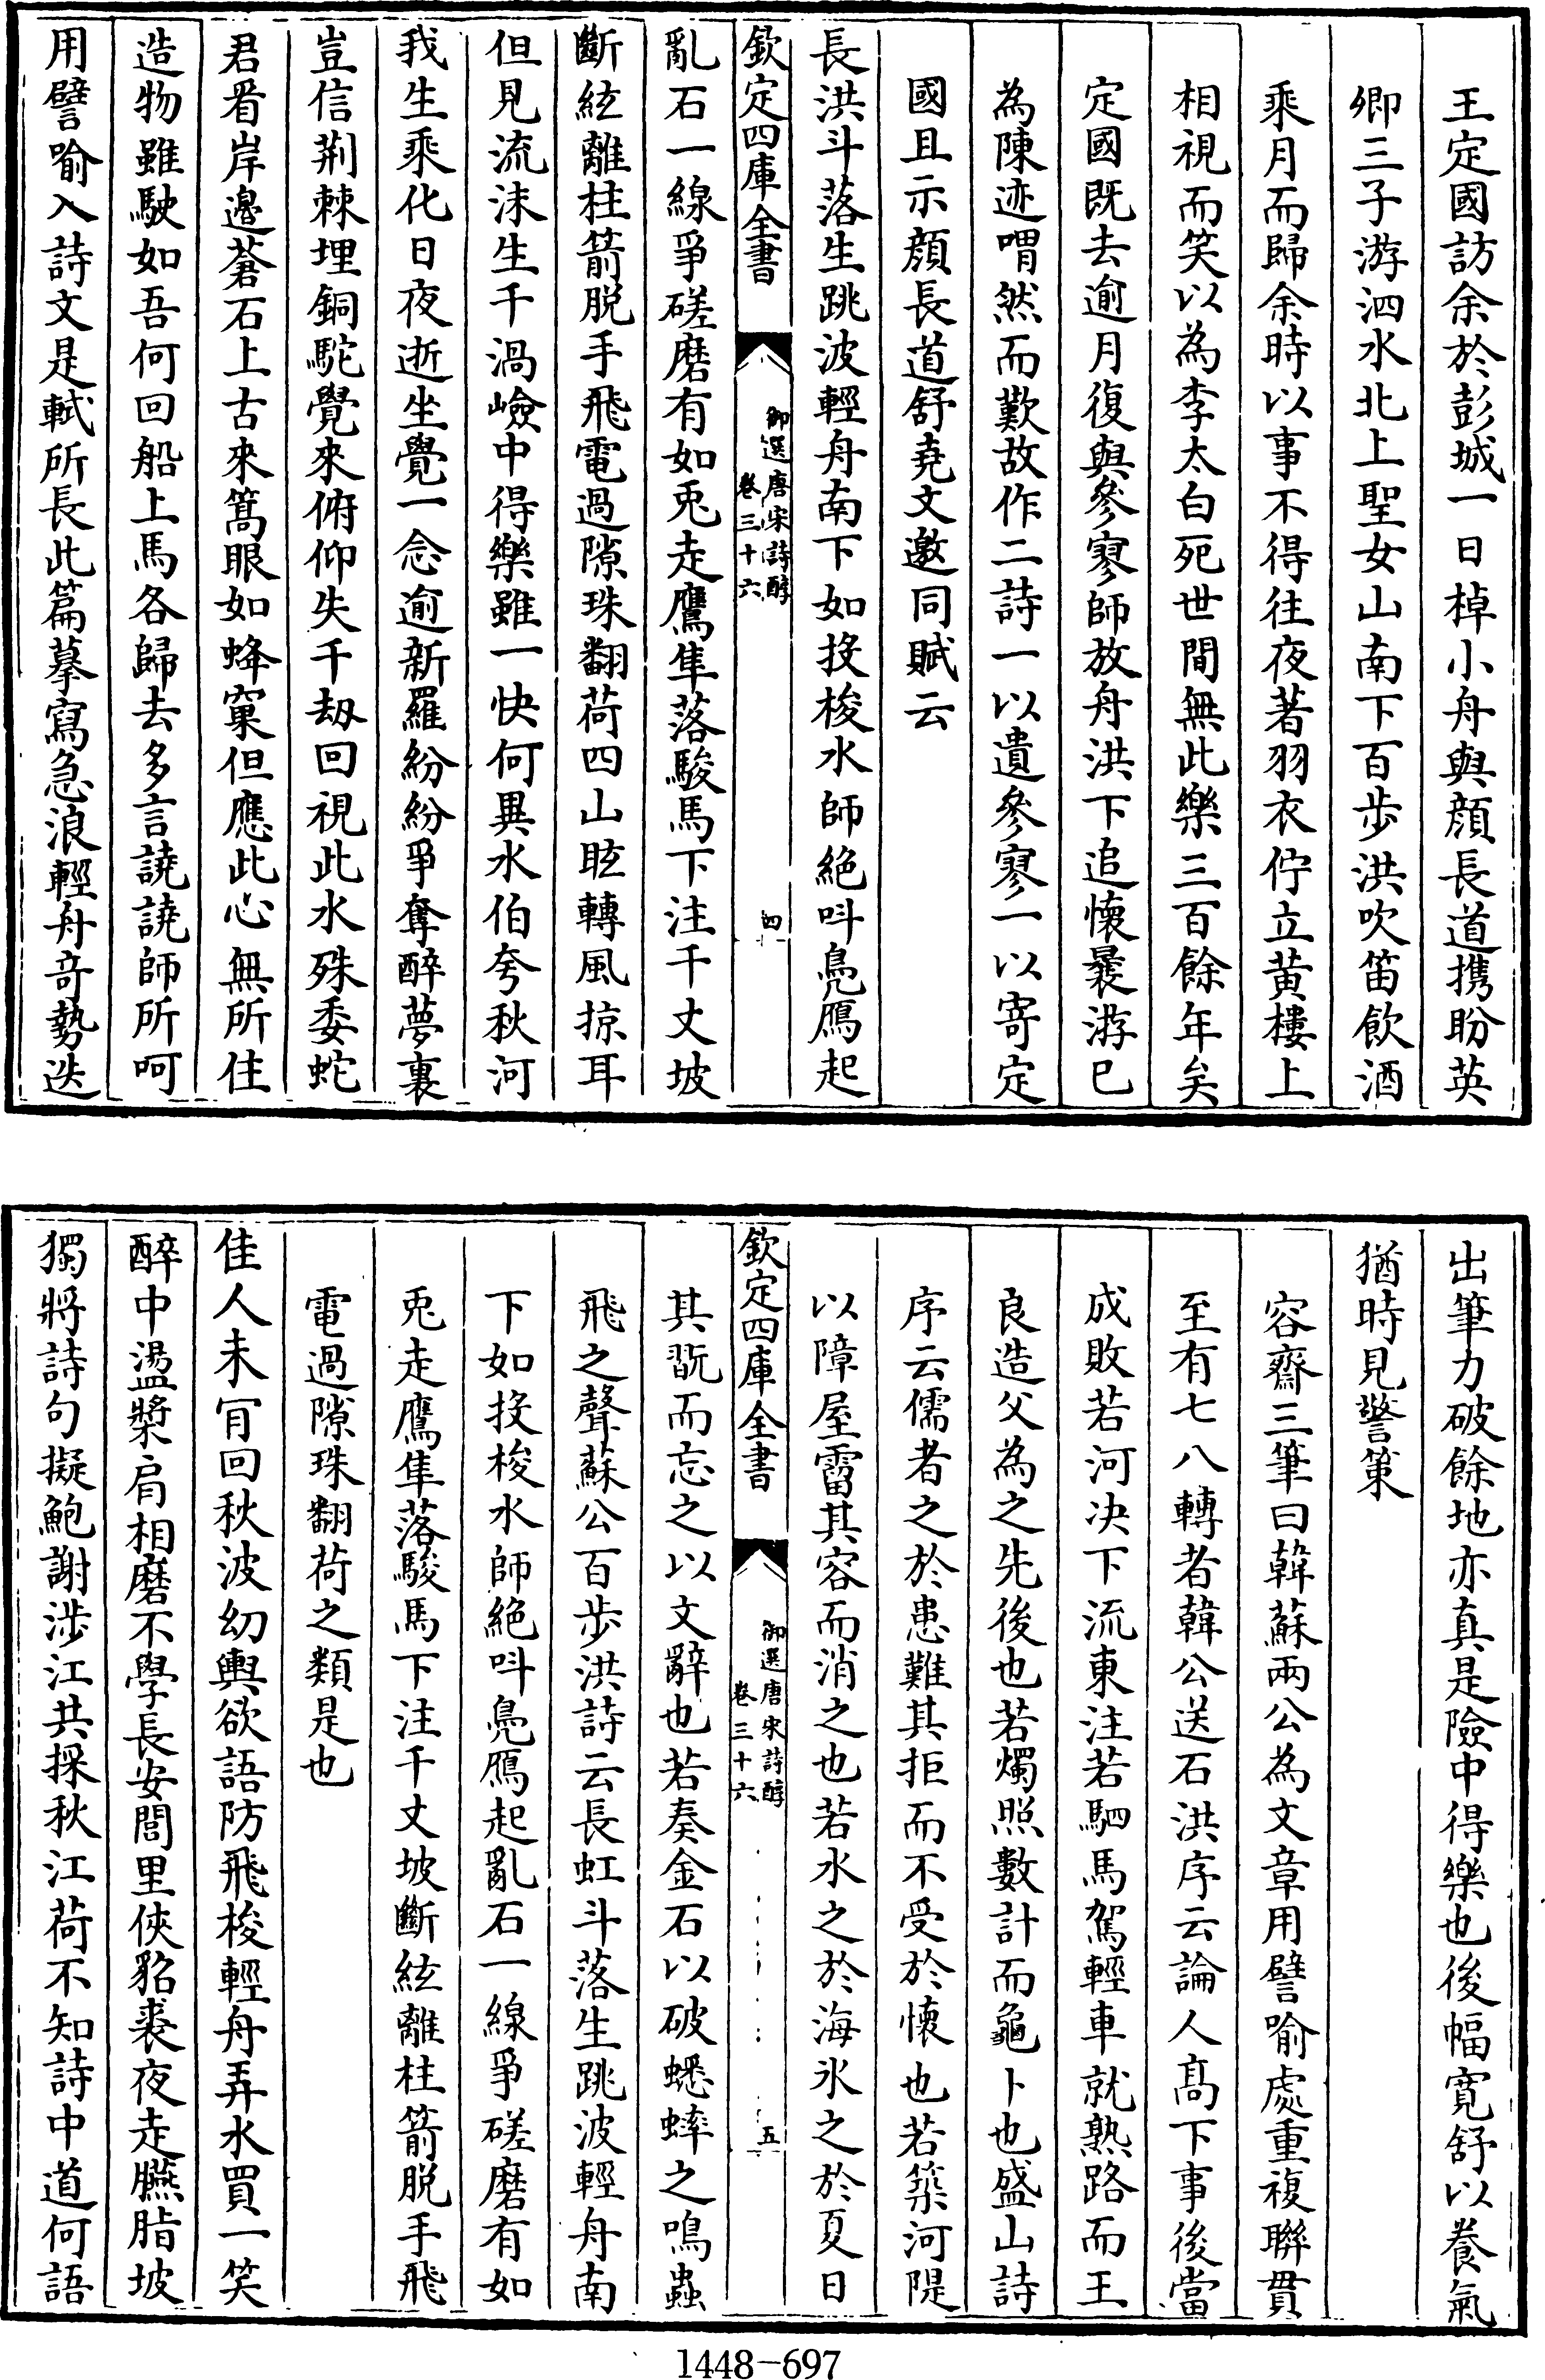 王定國訪余於彭城一日棹小舟與顔長道攜盼英
卿三子游泗水北上聖女山南下百步洪吹笛飲酒
乘月而歸余時以事不得往夜著羽衣佇立黄樓上
相視而笑以為李太白死世間無此樂三百餘年矣
定國既去逾月復與參寥師放舟洪下追懷曩游已
為陳迹喟然而歎故作二詩一以遺參寥一以寄定
國且示顔長道舒堯文邀同賦云
長洪斗落生跳波輕舟南下如投梭水師絶呌鳧鴈起
欽定四庫全書
御選唐宋詩醇
卷三十六
四
亂石一線爭磋磨有如兎走鷹隼落駿馬下注千丈坡
斷絃離柱箭脱手飛電過隙珠翻荷四山眩轉風掠耳
但見流沫生千渦嶮中得樂雖一快何異水伯夸秋河
我生乘化日夜逝坐覺一念逾新羅紛紛爭奪醉夢裏
豈信荆棘埋銅駝覺來俯仰失千劫回視此水殊委蛇
君看岸邉蒼石上古來篙眼如蜂窠但應此心無所住
造物雖駛如吾何回船上馬各歸去多言譊譊師所呵
用譬喻入詩文是軾所長此篇摹寫急浪輕舟竒勢迭
出筆力破餘地亦真是險中得樂也後幅寛舒以養氣
猶時見警策
容齋三筆曰韓蘇兩公為文章用譬喻處重複聯貫
至有七八轉者韓公送石洪序云論人髙下事後當
成敗若河决下流東注若駟馬駕輕車就熟路而王
良造父為之先後也若燭照數計而龜卜也盛山詩
序云儒者之於患難其拒而不受於懷也若築河隄
以障屋霤其容而消之也若水之於海氷之於夏日
欽定四庫全書
御選唐宋詩醇
卷三十六
五
其翫而忘之以文辭也若奏金石以破蟋蟀之鳴蟲
飛之聲蘇公百步洪詩云長虹斗落生跳波輕舟南
下如投梭水師絶呌鳧鴈起亂石一線爭磋磨有如
兎走鷹隼落駿馬下注千丈坡斷絃離柱箭脱手飛
電過隙珠翻荷之類是也
佳人未肎回秋波幼輿欲語防飛梭輕舟弄水買一笑
醉中盪槳肩相磨不學長安閭里俠貂裘夜走臙脂坡
獨將詩句擬鮑謝涉江共採秋江荷不知詩中道何語
1448-697